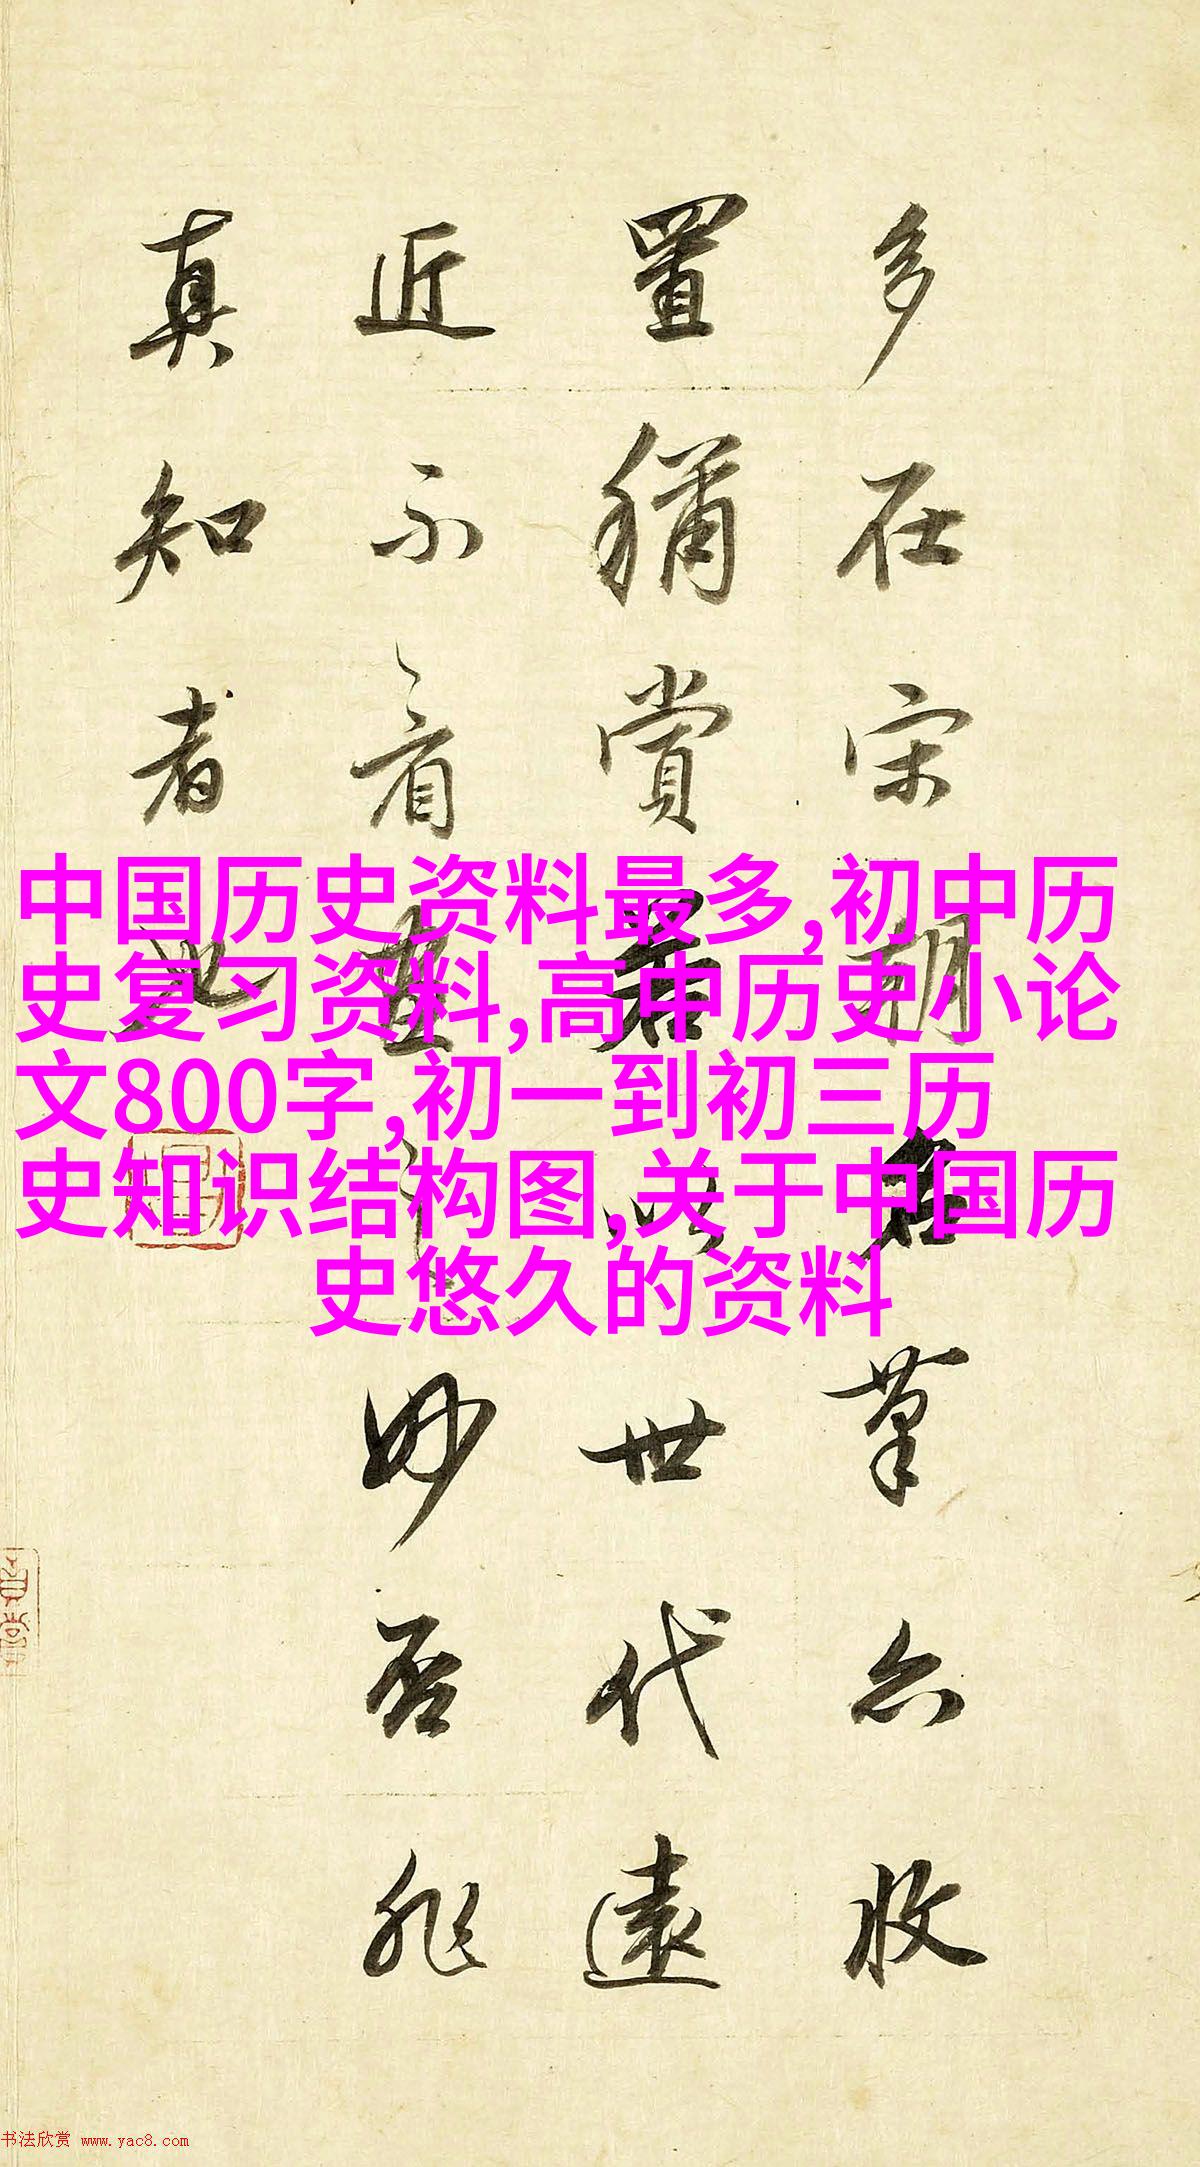 多在宋名筆亦收
置稱賞若以世代遠
近不看畫妙否非
真知者也
中国历史资料最多,初中历
史复习资料,高中历史小论
文800字,初一到初三历
史知识结构图,关于中国历
史悠久的资料
书法欣赏 www.yac8.com